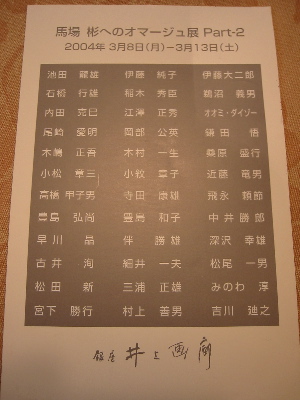 馬場 彬へのオマージュ展 Part-2
2004年 3月8日(月)−3月13日(土)
池田 龍雄 伊藤 純子 伊藤大二郎
石橋 行雄 稲木 秀臣 鵜沼 義男
内田 克巳 江澤 正秀 オオミ・ダイゾー
尾崎 愛明 岡部 公英 鎌田 悟
木嶋 正吾 木村 一生 桑原 盛行
小松 章三 小牧 章子 近藤 竜男
高橋 甲子男 寺田 康雄 飛永 頼節
豊島 弘尚 豊島 和子 中井 勝郎
早川 晶 伴 勝雄 深沢 幸雄
古井 洵 細井 一夫 松尾 一男
松田 新 三浦 正雄 みのわ 淳
宮下 勝行 村上 善男 吉川 廸之
銀座 井上画廊